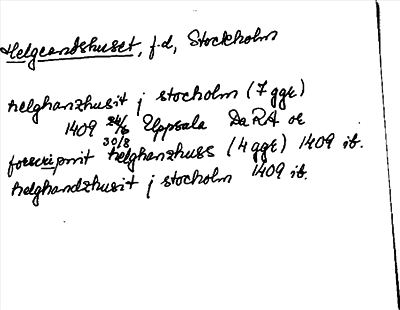 Helgeandshuset, f.d, Stockholm
helghanzhusit j stocholm (7 ggr)
1409 24/6 Uppsala DaRA oc
30/8
forscripnit helghanzhuss (4 ggr) 1409 ib.
helghandzhusit j stocholm 1409 ib.